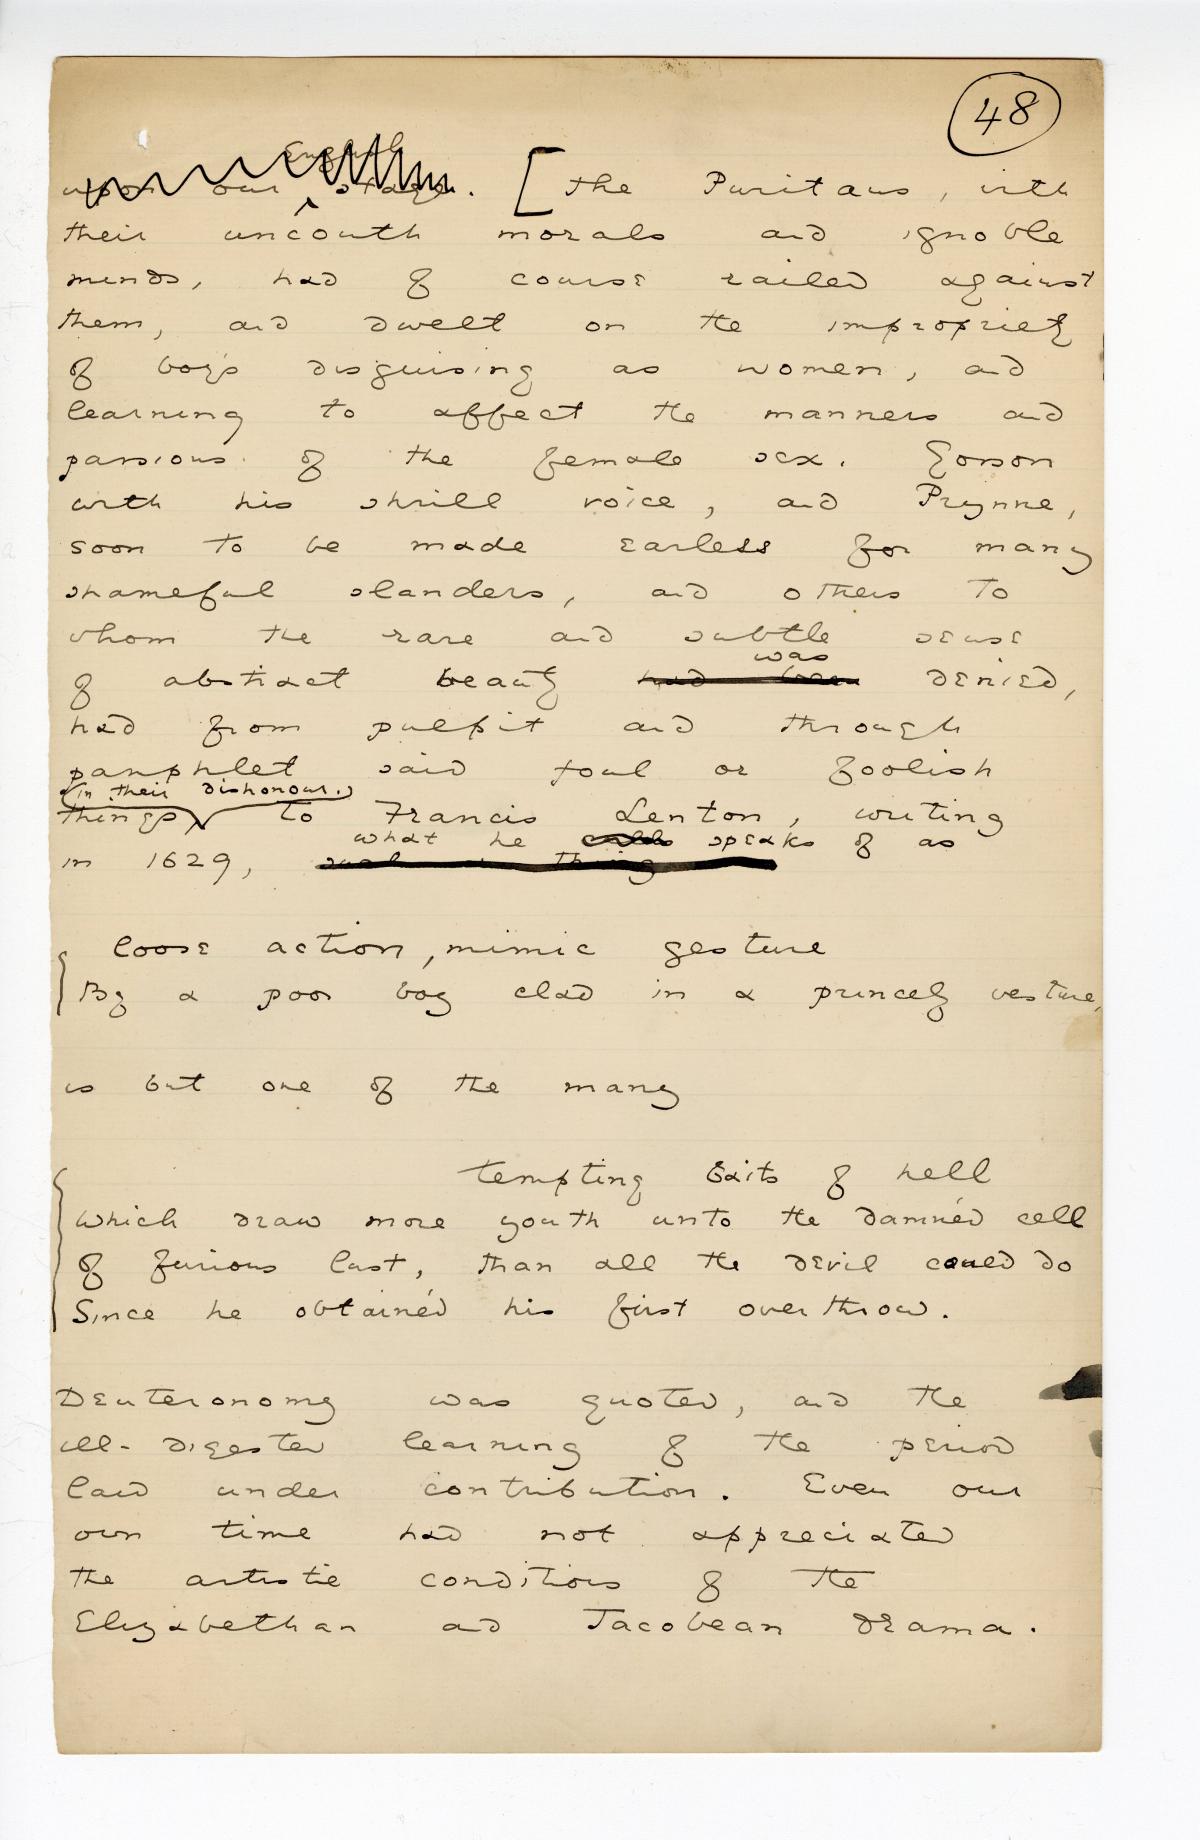 48
English
upon our stage. [ the Puritans, with
their uncouth morals and ignoble
minds, had of course railed against
them, and dwelt on the impropriety
of boys disguising as women, and
learning to affect the manners and
passions of the female sex. Gosson
with his shrill voice, and Prynne,
soon to be made earless for many
shameful slanders, and others to
whom the rare and subtle sense
was
of abstract beauty had been denied,
had from pulpit and through
pamphlet said foul or foolish
in their dishonour.
things, to Francis Lenton, writing
what he calls speaks of as
in 1629, such a thing
loose action, mimic gesture
By a poor boy clad in a princely vesture,
is but one of the many
tempting baits of hell
which draw more youth unto the damnéd cell
of furious lust, than all the devil could do
Since he obtainéd his first overthrow.
Deuteronomy was quoted, and the
ill-digested learning of the period
laid under contribution. Even our
own time had not appreciated
the artistic conditions of the
Elizabethan and Jacobean drama.